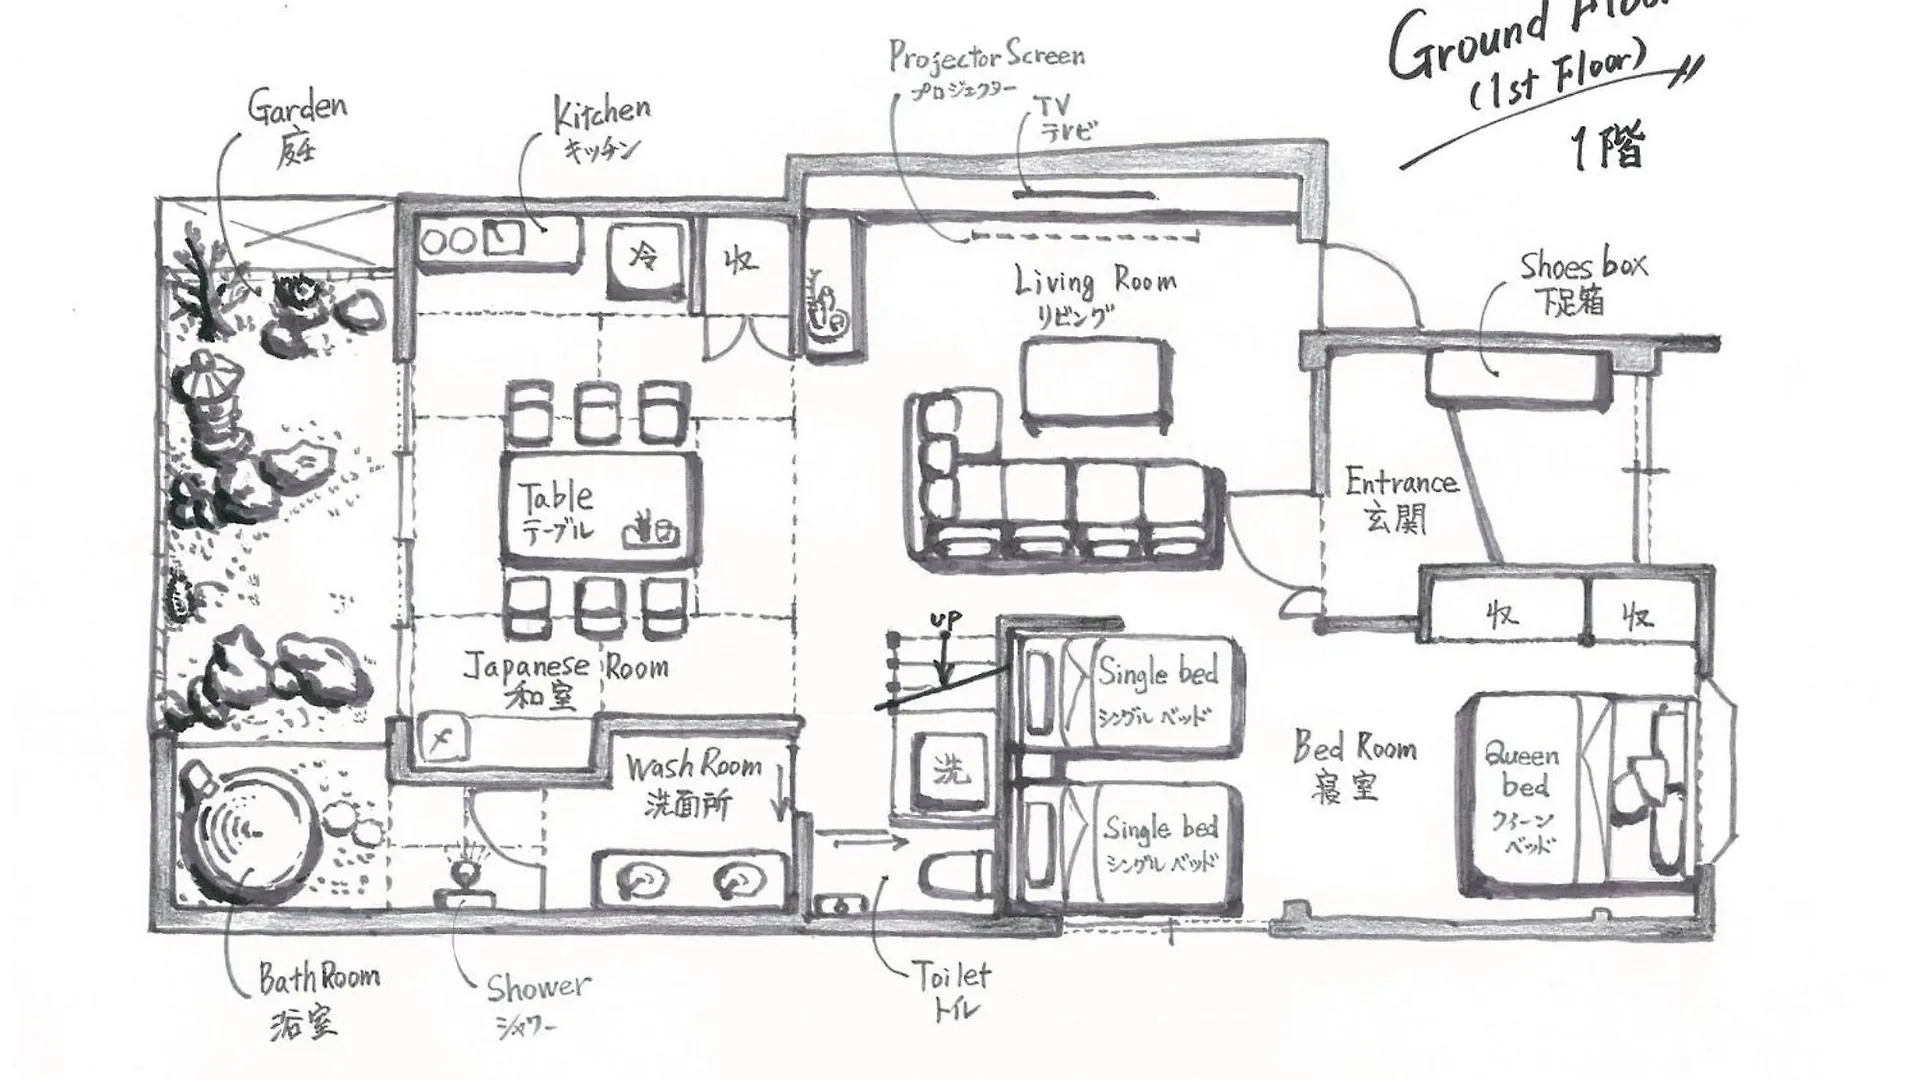 Ground Floor
(1st Floor)
1階
Projector Screen
プロジェクター
TV
テレビ
Garden
庭
Kitchen
キッチン
冷
収
Living Room
リビング
Shoes box
下足箱
Entrance
玄関
Table
テーブル
収
収
UP
Japanese Room
和室
Single bed
シングルベッド
Wash Room
洗面所
洗
Bed Room
寝室
Queen
bed
クイーン
ベッド
Single bed
シングルベッド
Bath Room
浴室
Shower
シャワー
Toilet
トイレ